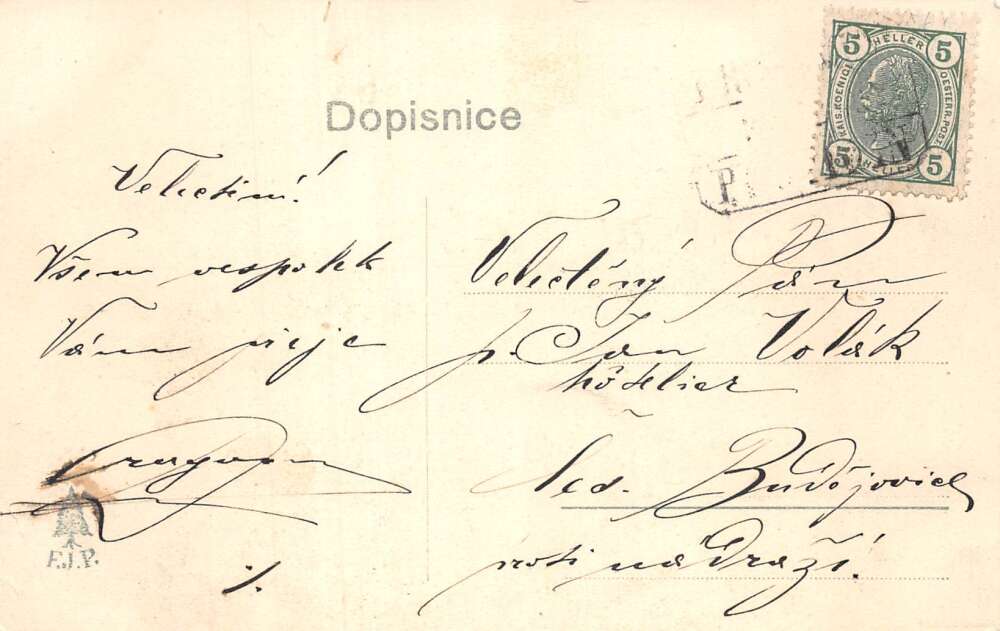 Dopisnice
5 HELLER 5
KAIS. KOENIGL. OESTERR. POST
5 HELLER 5
P.
Velectěnı!
Všem vespolek
Vám přeje
F.J.P.
Velectěný Pán
p. Jan Volák
hôtelier
Čes. Budějovice
proti nádraží.